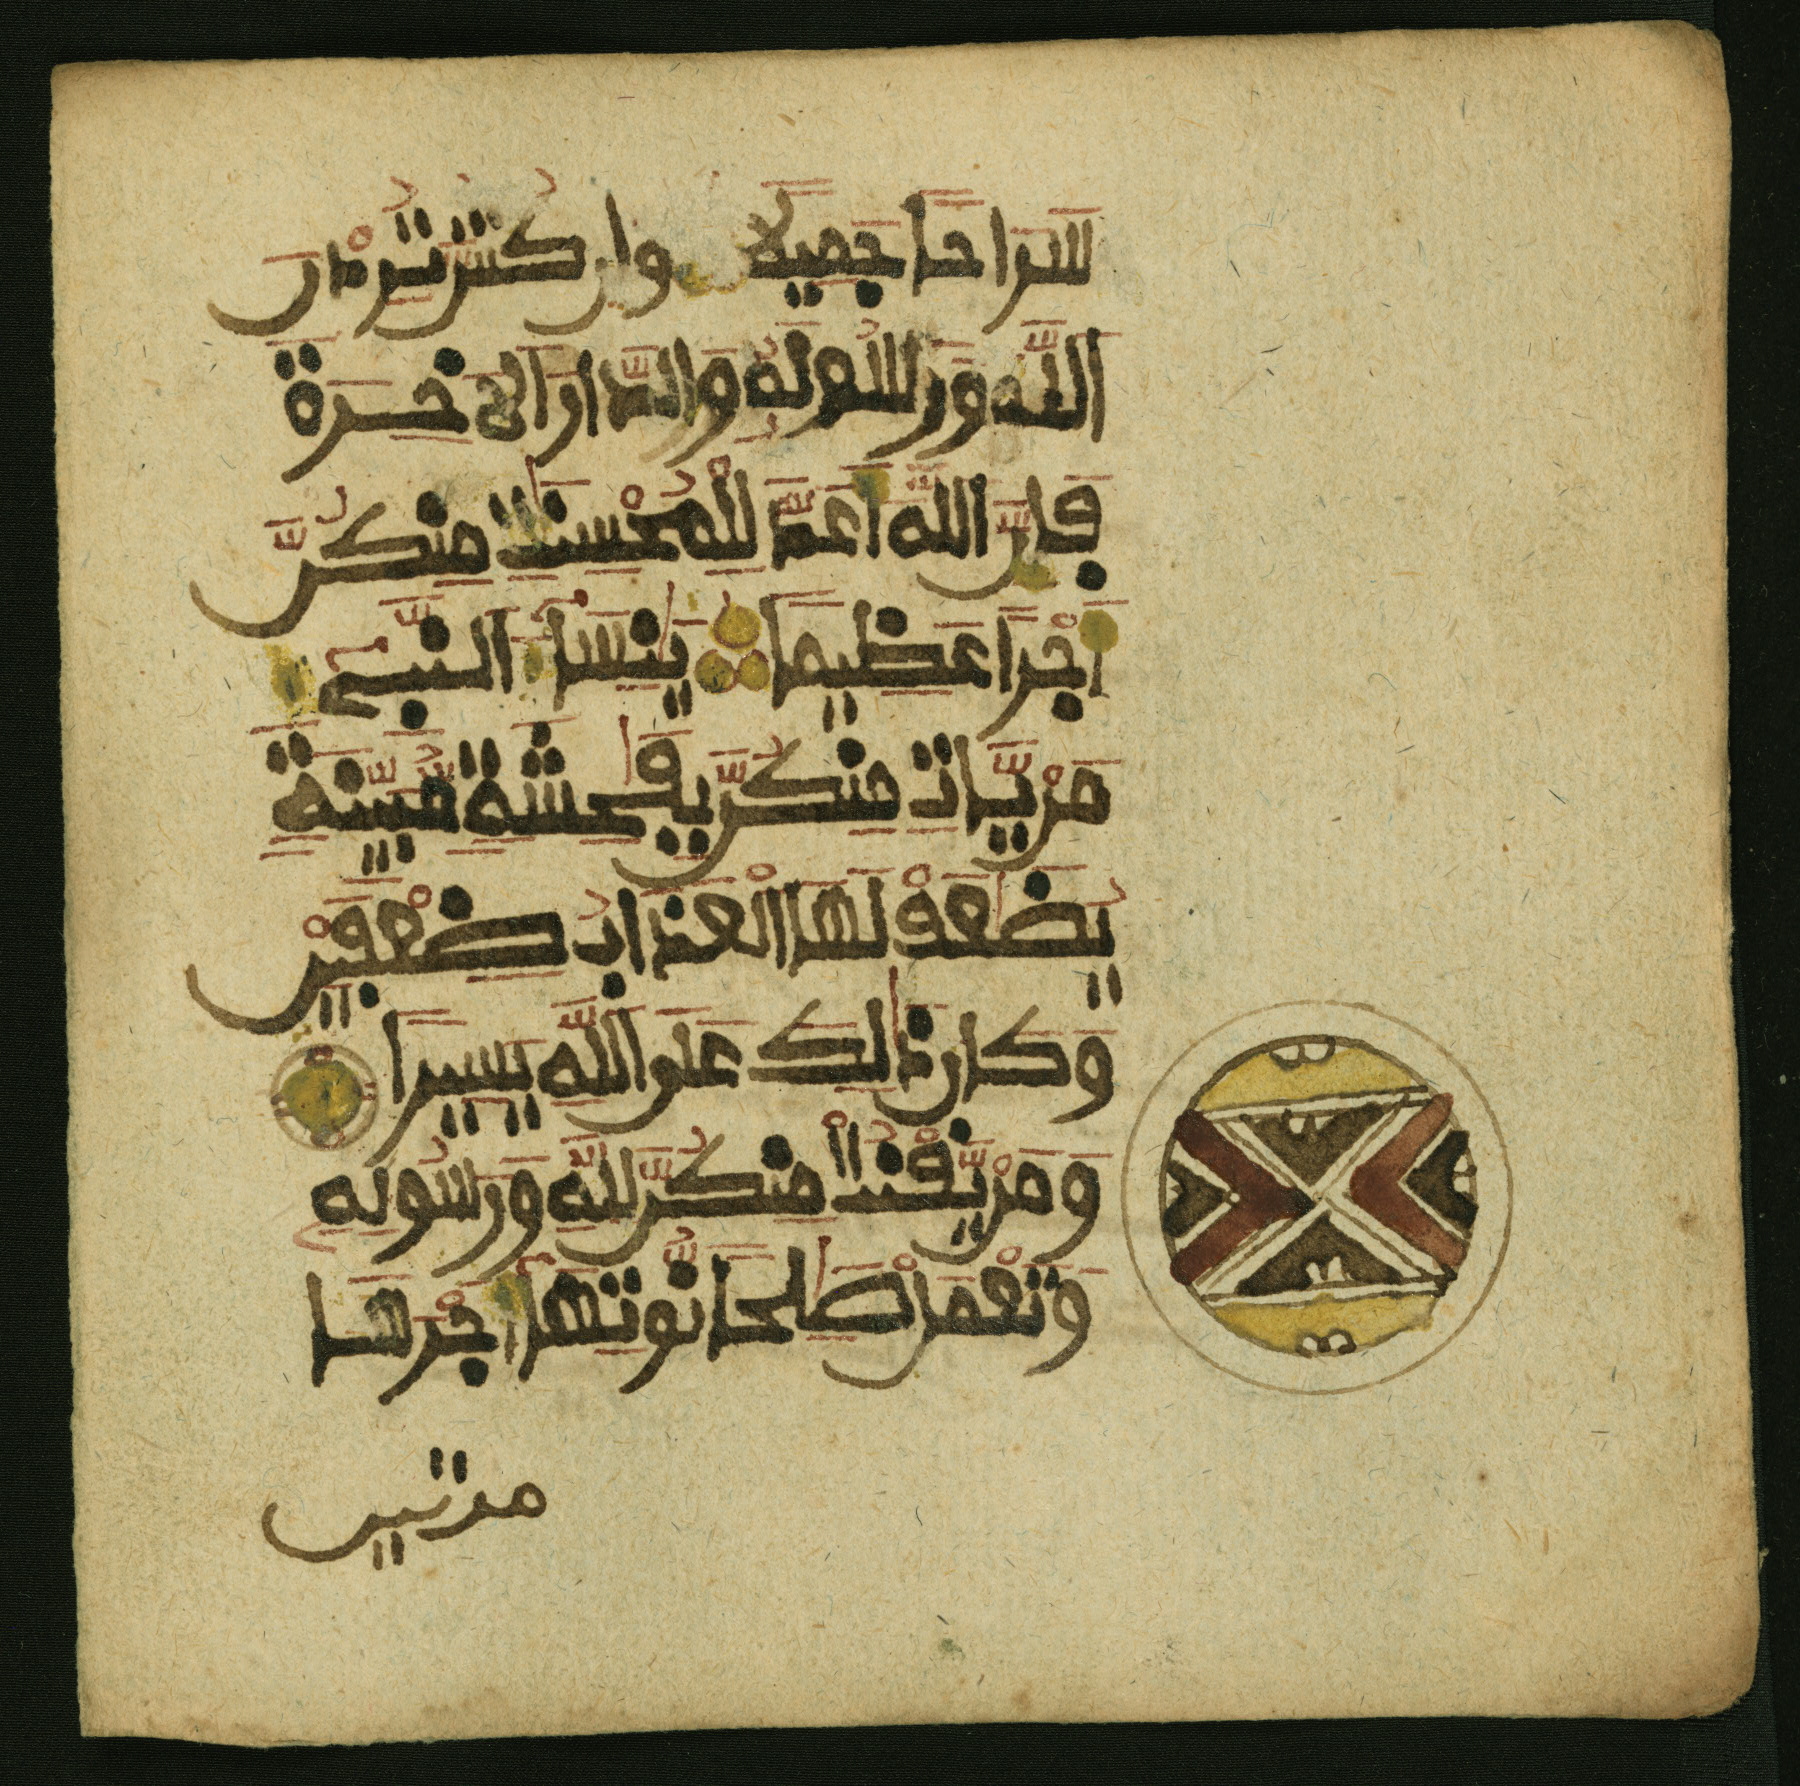 سَرَاحًا جَمِيلًا وَإِن كُنتُنَّ تُرِدْنَ
اللَّهَ وَرَسُولَهُ وَالدَّارَ الْأَخِرَةَ
فَإِنَّ اللَّهَ أَعَدَّ لِلْمُحْسِنَٰتِ مِنكُنَّ
أَجْرًا عَظِيمًا يَٰنِسَآءَ النَّبِيءِ
مَنْ يَّاتِ مِنكُنَّ بِفَٰحِشَةٍ مُّبَيَّنَةٍ
يُضَٰعَفْ لَهَا الْعَذَابُ ضِعْفَيْنِ
وَكَانَ ذَٰلِكَ عَلَى اللَّهِ يَسِيرًا
وَمَنْ يَّقْنُتْ مِنكُنَّ لِلَّهِ وَرَسُولِهِ
وَتَعْمَلْ صَٰلِحًا نُّوتِهَا أَجْرَهَا
مرتين